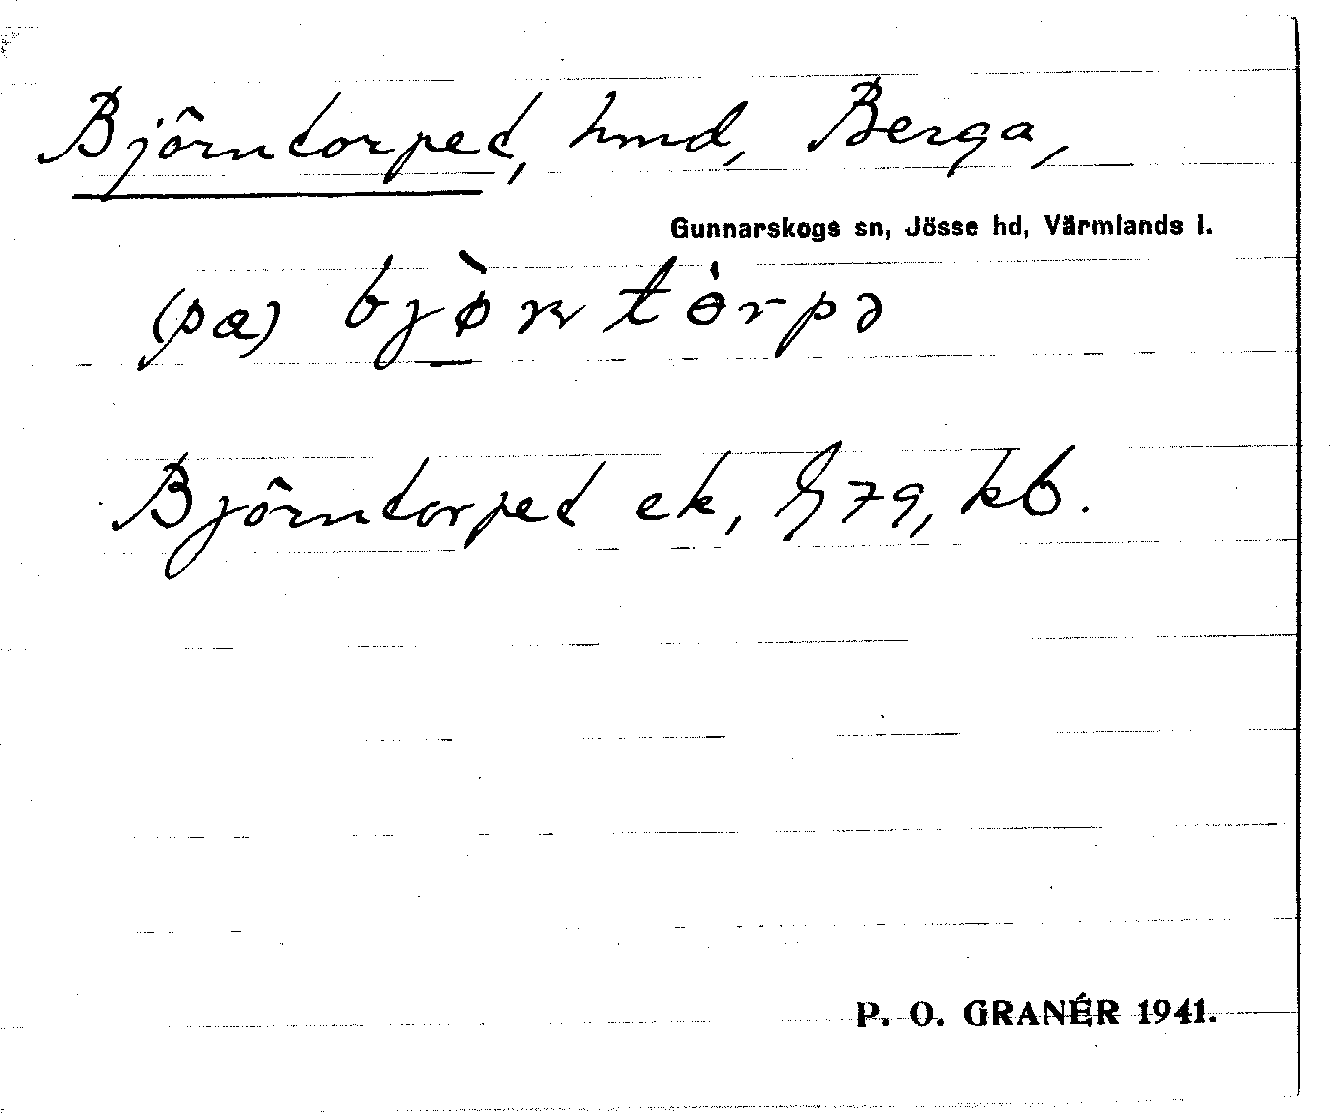 Björntorpet, hmd, Berga,
Gunnarskogs sn, Jösse hd, Värmlands l.
(pa)
Björntorpet ek, G79, kb.
P. O. GRANÉR 1941.